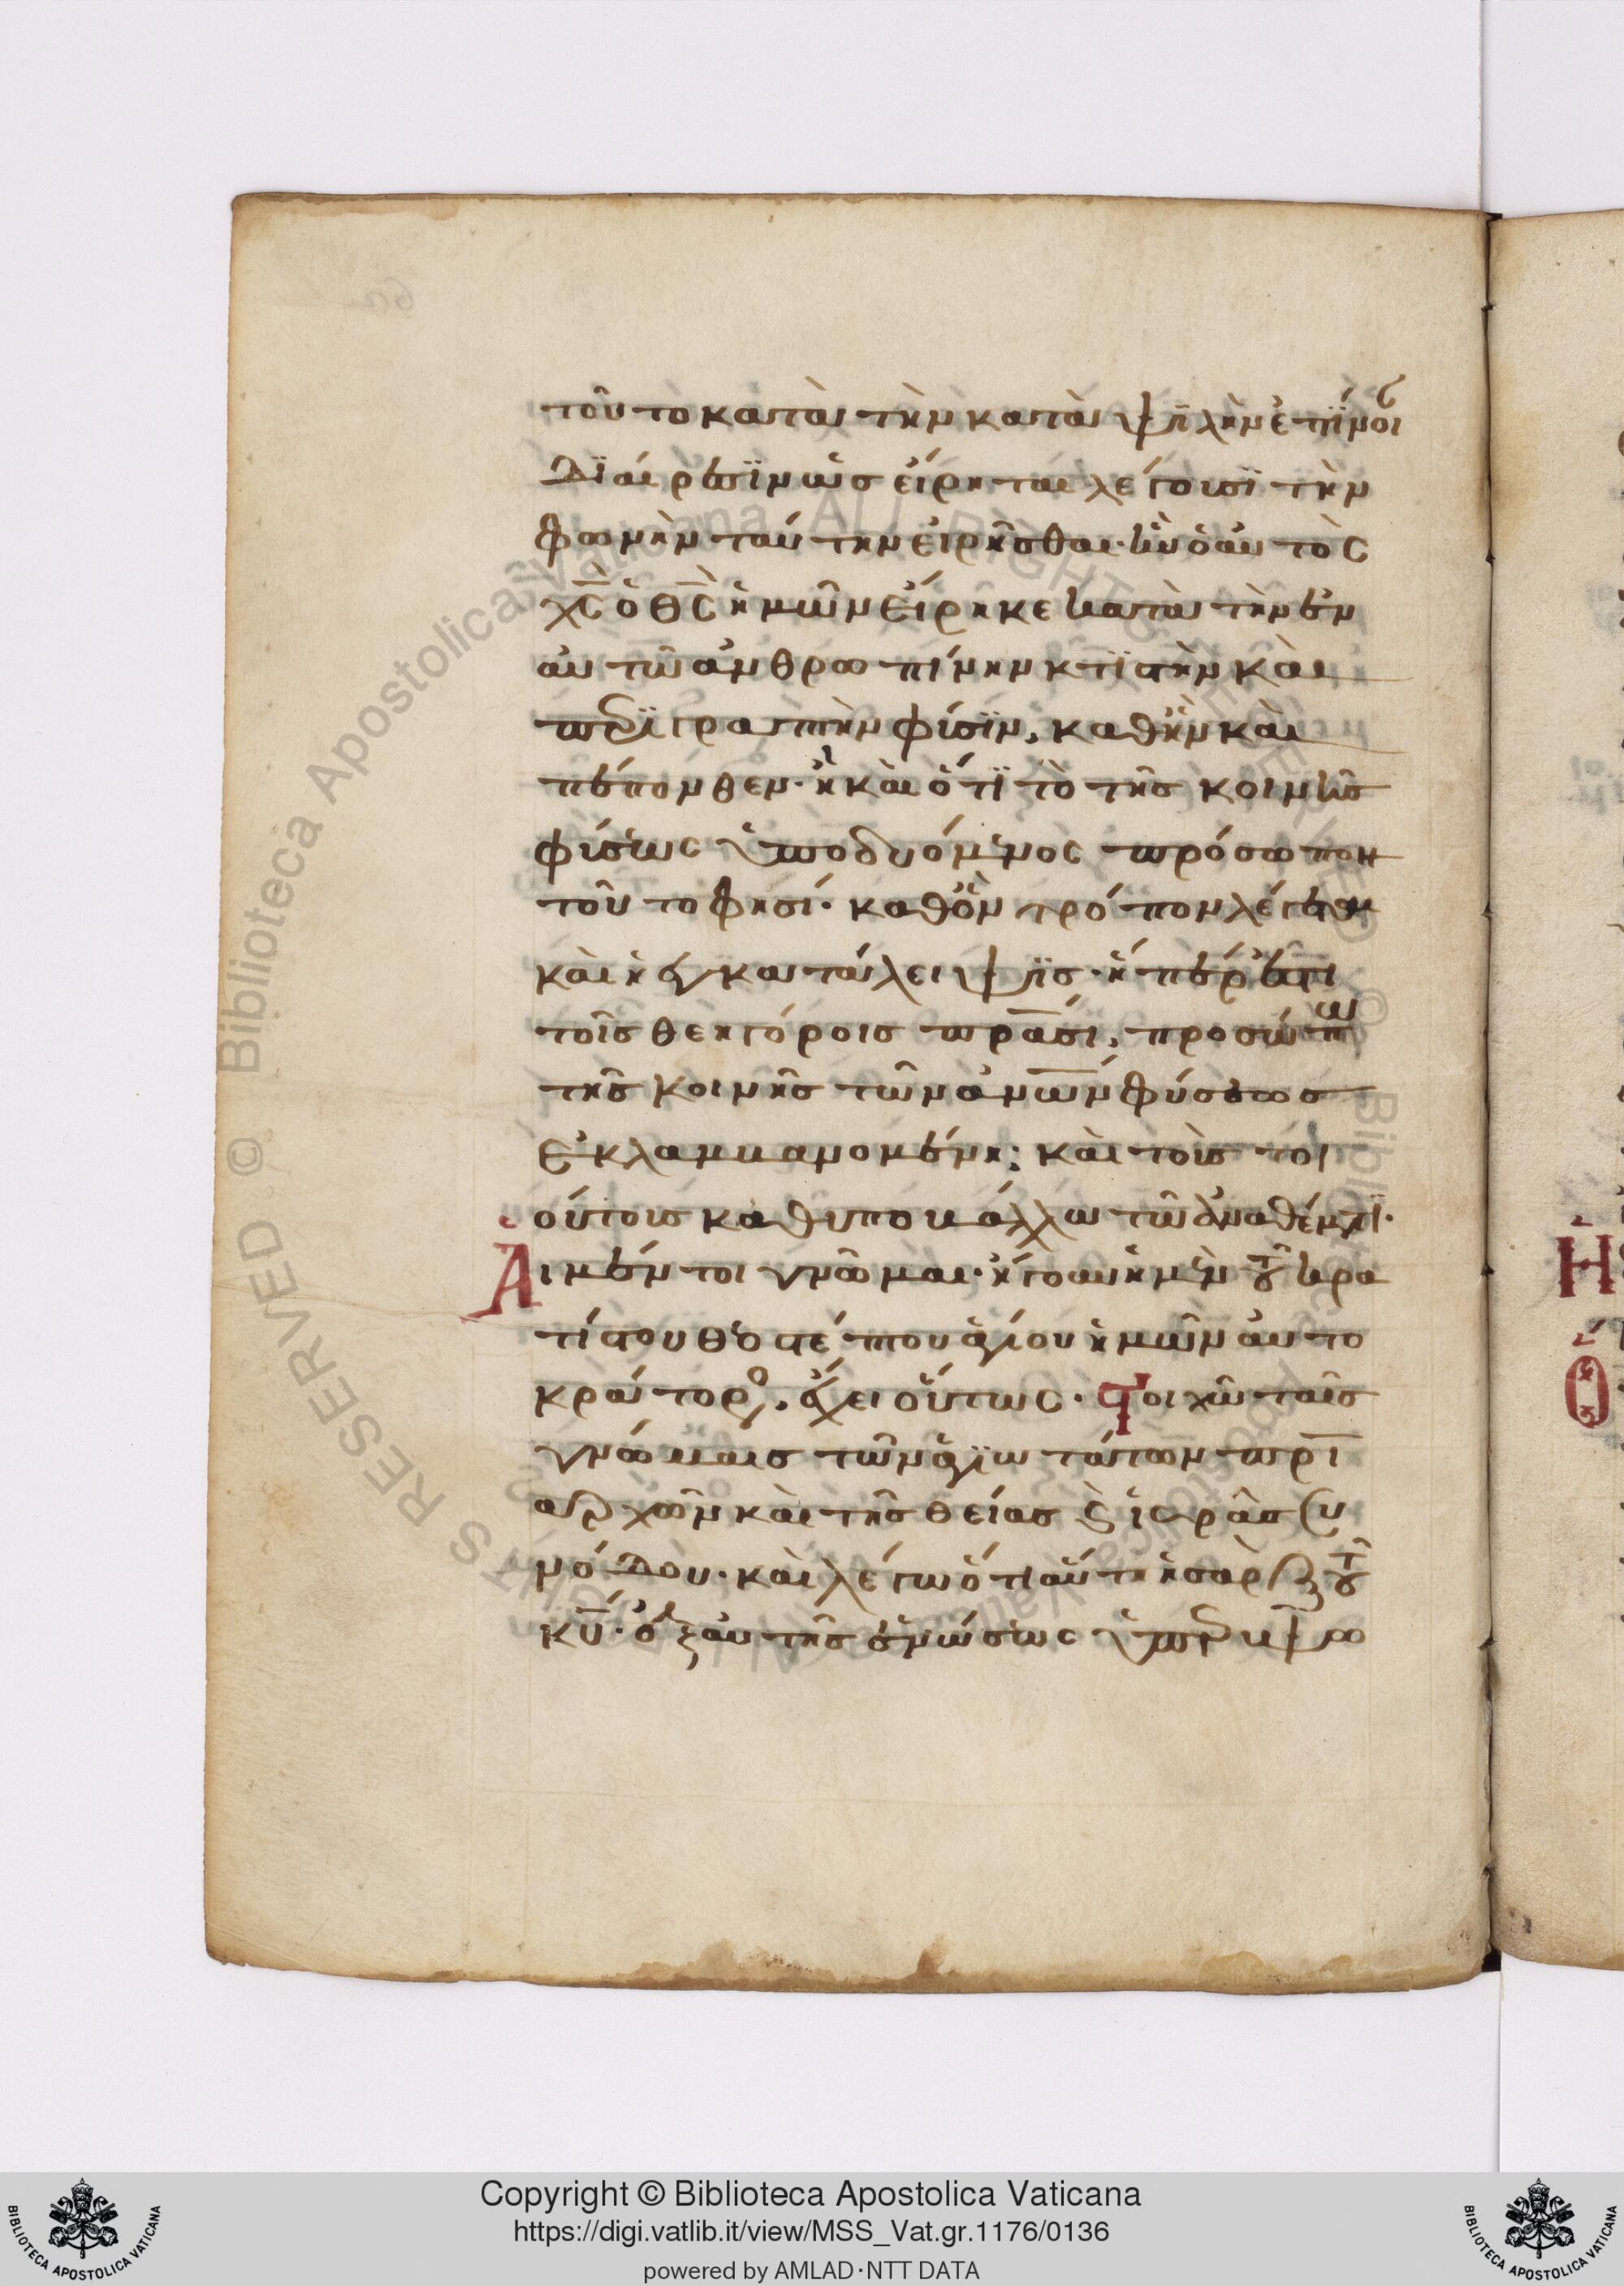 τοῦτο κατὰ τὴν κατὰ ψϊλὴν ἐπίνοι
δϊαίρεσϊν ὡς εἴρηται λέγουσϊ τὴν
φωνὴν ταύτην εἰρῆσθαι· ἣν ὁ αὐτὸς
χ̅ς̅ ὁ θ̅ς̅ ἡμῶν εἴρηκε κατὰ τὴν ἐν
αὐτῶ ἀνθρωπίνην κτϊστὴν καὶ
περϊγραπτὴν φύσϊν, καθ' ἣν καὶ
πέπονθεν· ἢ καὶ ὅτϊ τὸ τῆς κοινῆς
φύσεως ὑποδυόμενος πρόσωπον
τοῦτο φησί· καθ' ὃν τρόπον λέγεται
καὶ ἡ ἐγκατάλειψϊς· ἡ παρ' ἔστι
τοῖς θεηγόροις π̅ρ̅ασι, προσώπω
τῆς κοινῆς τῶν α̅ν̅ω̅ν̅ φύσεως
ἐκλαμβανομένη; καὶ τοῖς τοι
ούτοις καθυποβάλλω τῶ ἀναθέματϊ·
Αἱ μέντοι γνῶμαι· ἤγουν ἡ μὲν τοῦ κρα
τίστου θεοστέπτου ἁγίου ἡμῶν αὐτο
κράτορος, ἔχει οὕτως· Στοιχῶ ταῖς
γνώμαις τῶν ἁγϊωτάτων π̅ρ̅ι
αρχῶν καὶ τῆς θείας ϗ ἱερᾶς συ
νόδου· καὶ λέγω ὅτι αὕτη ἡ σὰρξ τοῦ
κ̅υ̅· ἐξ αὐτῆς ἑνώσεως ὑπερυψω